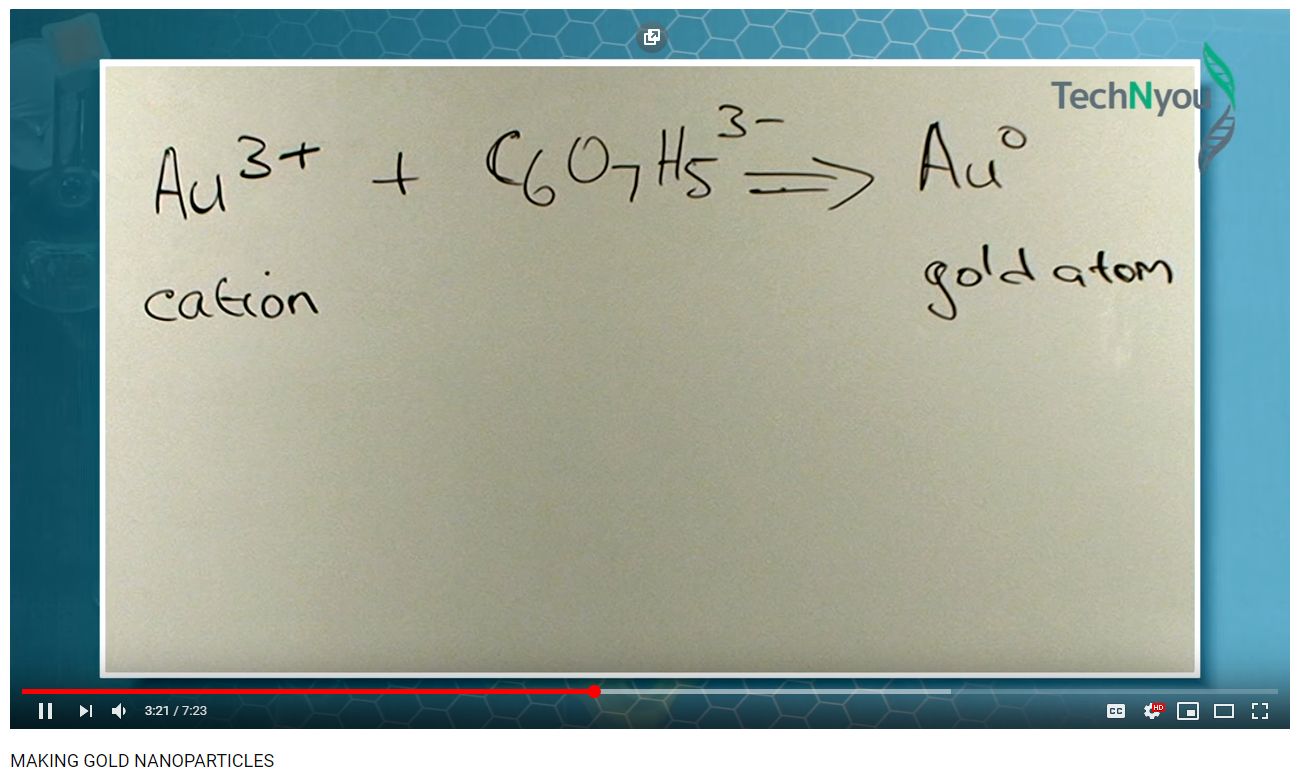 TechNyou
Au³⁺ + C₆O₇H₅³⁻ ⇒ Au⁰
cation gold atom
3:21 / 7:23
CC HD
MAKING GOLD NANOPARTICLES